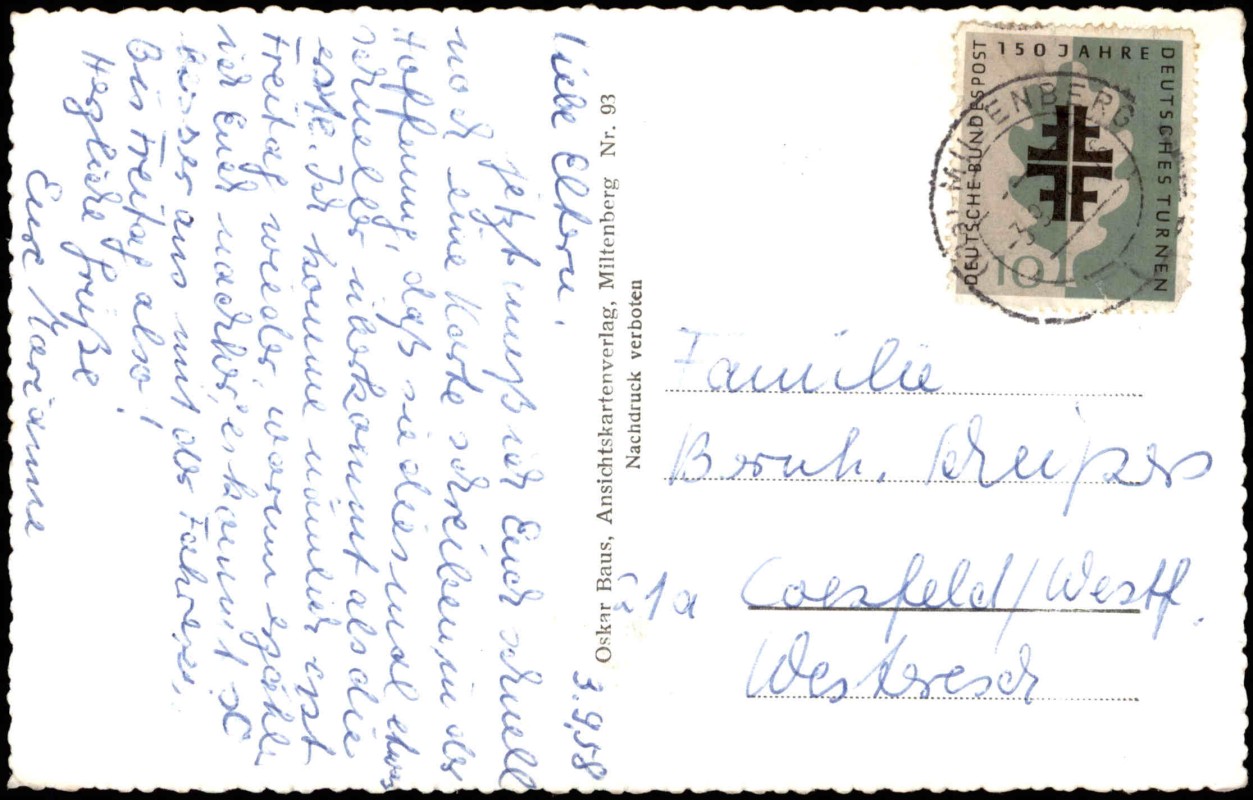 3.9.58
Liebe Eltern!
Jetzt muß ich Euch schnell
noch eine Karte schreiben, in der
Hoffnung, daß sie diesmal etwas
schneller überkommt als die
erste. Ich komme nämlich erst
Freitag wieder, warum erzähle
ich Euch nachher, es kommt so
besser aus mit der Fahrerei.
Bis Freitag also!
Herzliche Grüße
Eure Marianne
Oskar Baus, Ansichtskartenverlag, Miltenberg Nr. 93
Nachdruck verboten
150 JAHRE
DEUTSCHES TURNEN
DEUTSCHE BUNDESPOST
10
Familie
Bernh.
21a Coesfeld/Westf.